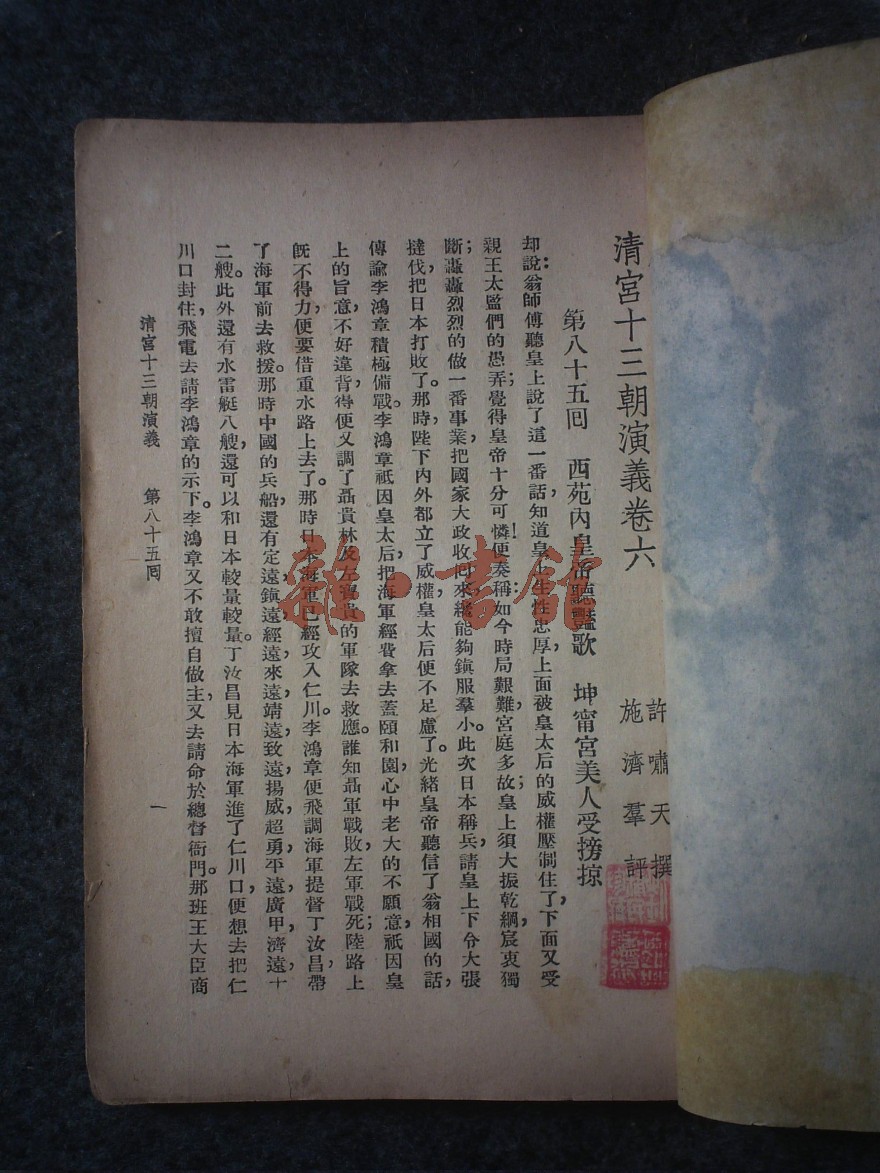 清宮十三朝演義卷六
許嘯天撰
施濟羣評
第八十五囘 西苑內皇帝聽豔歌 坤甯宮美人受搒掠
却說：翁師傅聽皇上說了這一番話，知道皇上生性忠厚，上面被皇太后的威權壓制住了，下面又受
親王太監們的愚弄；覺得皇帝十分可憐！便奏稱：如今時局艱難，宮庭多故；皇上須大振乾綱，宸衷獨
斷；轟轟烈烈的做一番事業，把國家大政收囘來，纔能夠鎭服羣小。此次日本稱兵，請皇上下令大張
撻伐，把日本打敗了。那時，陛下內外都立了威權，皇太后便不足慮了。光緒皇帝聽信了翁相國的話，
傳諭李鴻章積極備戰。李鴻章祇因皇太后，把海軍經費拿去蓋頤和園，心中老大的不願意，祇因皇
上的旨意，不好違背，得便又調了聶貴林及左寶貴的軍隊去救應。誰知聶軍戰敗，左軍戰死；陸路上
旣不得力，便要借重水路上去了。那時日本海軍已經攻入仁川。李鴻章便飛調海軍提督丁汝昌，帶
了海軍前去救援。那時中國的兵船，還有定遠，鎭遠，經遠，來遠，靖遠，致遠，揚威，超勇，平遠，廣甲，濟遠，十
二艘。此外還有水雷艇八艘，還可以和日本較量較量。丁汝昌見日本海軍進了仁川口，便想去把仁
川口封住，飛電去請李鴻章的示下。李鴻章又不敢擅自做主，又去請命於總督衙門。那班王大臣商
清宮十三朝演義 第八十五囘 一
書館